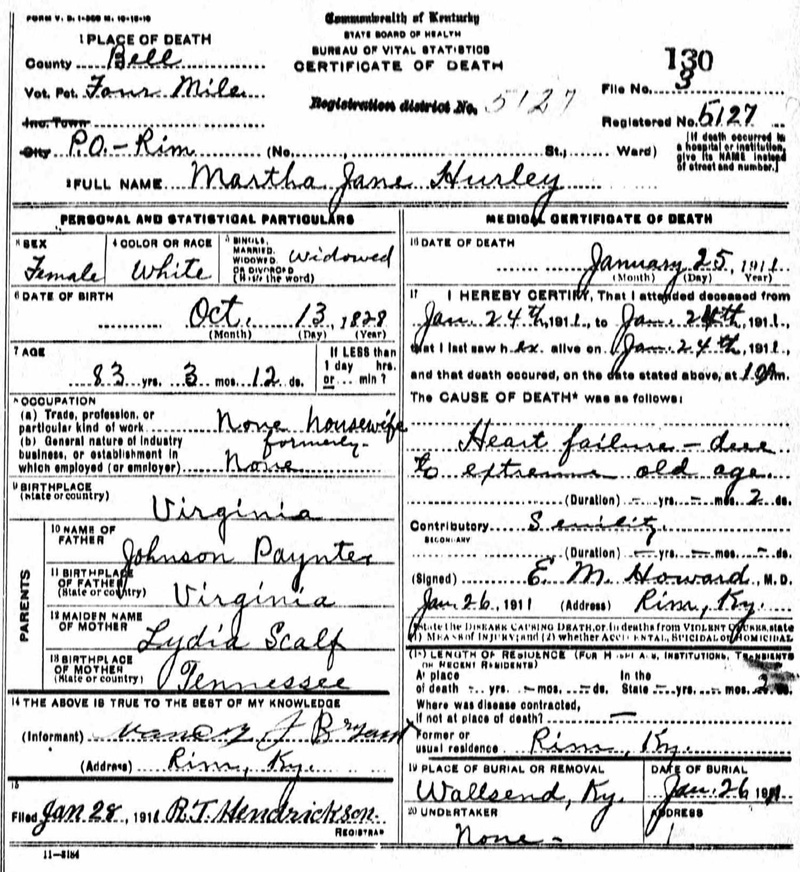 FORM V. S. 1-500 M. 10-18-10
Commonwealth of Kentucky
STATE BOARD OF HEALTH
BUREAU OF VITAL STATISTICS
CERTIFICATE OF DEATH
1 PLACE OF DEATH
County Bell
Vot. Pct. Four Mile
Inc. Town
City P.O. - Rim (No. St.; Ward)
Registration district No. 5127
130
File No. 3
Registered No. 5127
[If death occurred in a hospital or institution, give its NAME instead of street and number.]
2 FULL NAME Martha Jane Hurley
PERSONAL AND STATISTICAL PARTICULARS
3 SEX Female
4 COLOR OR RACE White
5 SINGLE, MARRIED, WIDOWED OR DIVORCED (Write the word) Widowed
6 DATE OF BIRTH
Oct. 13, 1828
(Month) (Day) (Year)
7 AGE
83 yrs. 3 mos. 12 ds.
If LESS than 1 day hrs. or min ?
8 OCCUPATION
(a) Trade, profession, or particular kind of work None housewife formerly
(b) General nature of industry business, or establishment in which employed (or employer) None
9 BIRTHPLACE
(State or country) Virginia
PARENTS
10 NAME OF FATHER Johnson Paynter
11 BIRTHPLACE OF FATHER (State or country) Virginia
12 MAIDEN NAME OF MOTHER Lydia Scalf
13 BIRTHPLACE OF MOTHER (State or country) Tennessee
14 THE ABOVE IS TRUE TO THE BEST OF MY KNOWLEDGE
(Informant) Nancy J Bryant
(Address) Rim, Ky.
15
Filed Jan 28, 1911 R.T. Hendrickson
REGISTRAR
11-3184
MEDICAL CERTIFICATE OF DEATH
16 DATE OF DEATH
January 25, 1911
(Month) (Day) (Year)
17 I HEREBY CERTIFY, That I attended deceased from
Jan. 24th, 1911, to Jan. 24th, 1911,
that I last saw h er alive on Jan. 24th, 1911,
and that death occured, on the date stated above, at m.
The CAUSE OF DEATH* was as follows:
Heart failure - due
to extreme old age
(Duration) - yrs. - mos. 2 ds.
Contributory Senility
SECONDARY
(Duration) - yrs. - mos. - ds.
(Signed) E. M. Howard, M. D.
Jan. 26, 1911 (Address) Rim, Ky.
*State the DISEASE CAUSING DEATH, or in deaths from VIOLENT CAUSES, state
(1) MEANS OF INJURY; and (2) whether ACCIDENTAL, SUICIDAL OR HOMICIDAL
18 LENGTH OF RESIDENCE (FOR HOSPITALS, INSTITUTIONS, TRANSIENTS OR RECENT RESIDENTS)
At place of death - yrs. - mos. - ds.
In the State - yrs. - mos. ds.
Where was disease contracted,
if not at place of death? -
Former or usual residence Rim, Ky.
19 PLACE OF BURIAL OR REMOVAL
Wallsend, Ky.
DATE OF BURIAL
Jan. 26 1911
20 UNDERTAKER
None -
ADDRESS